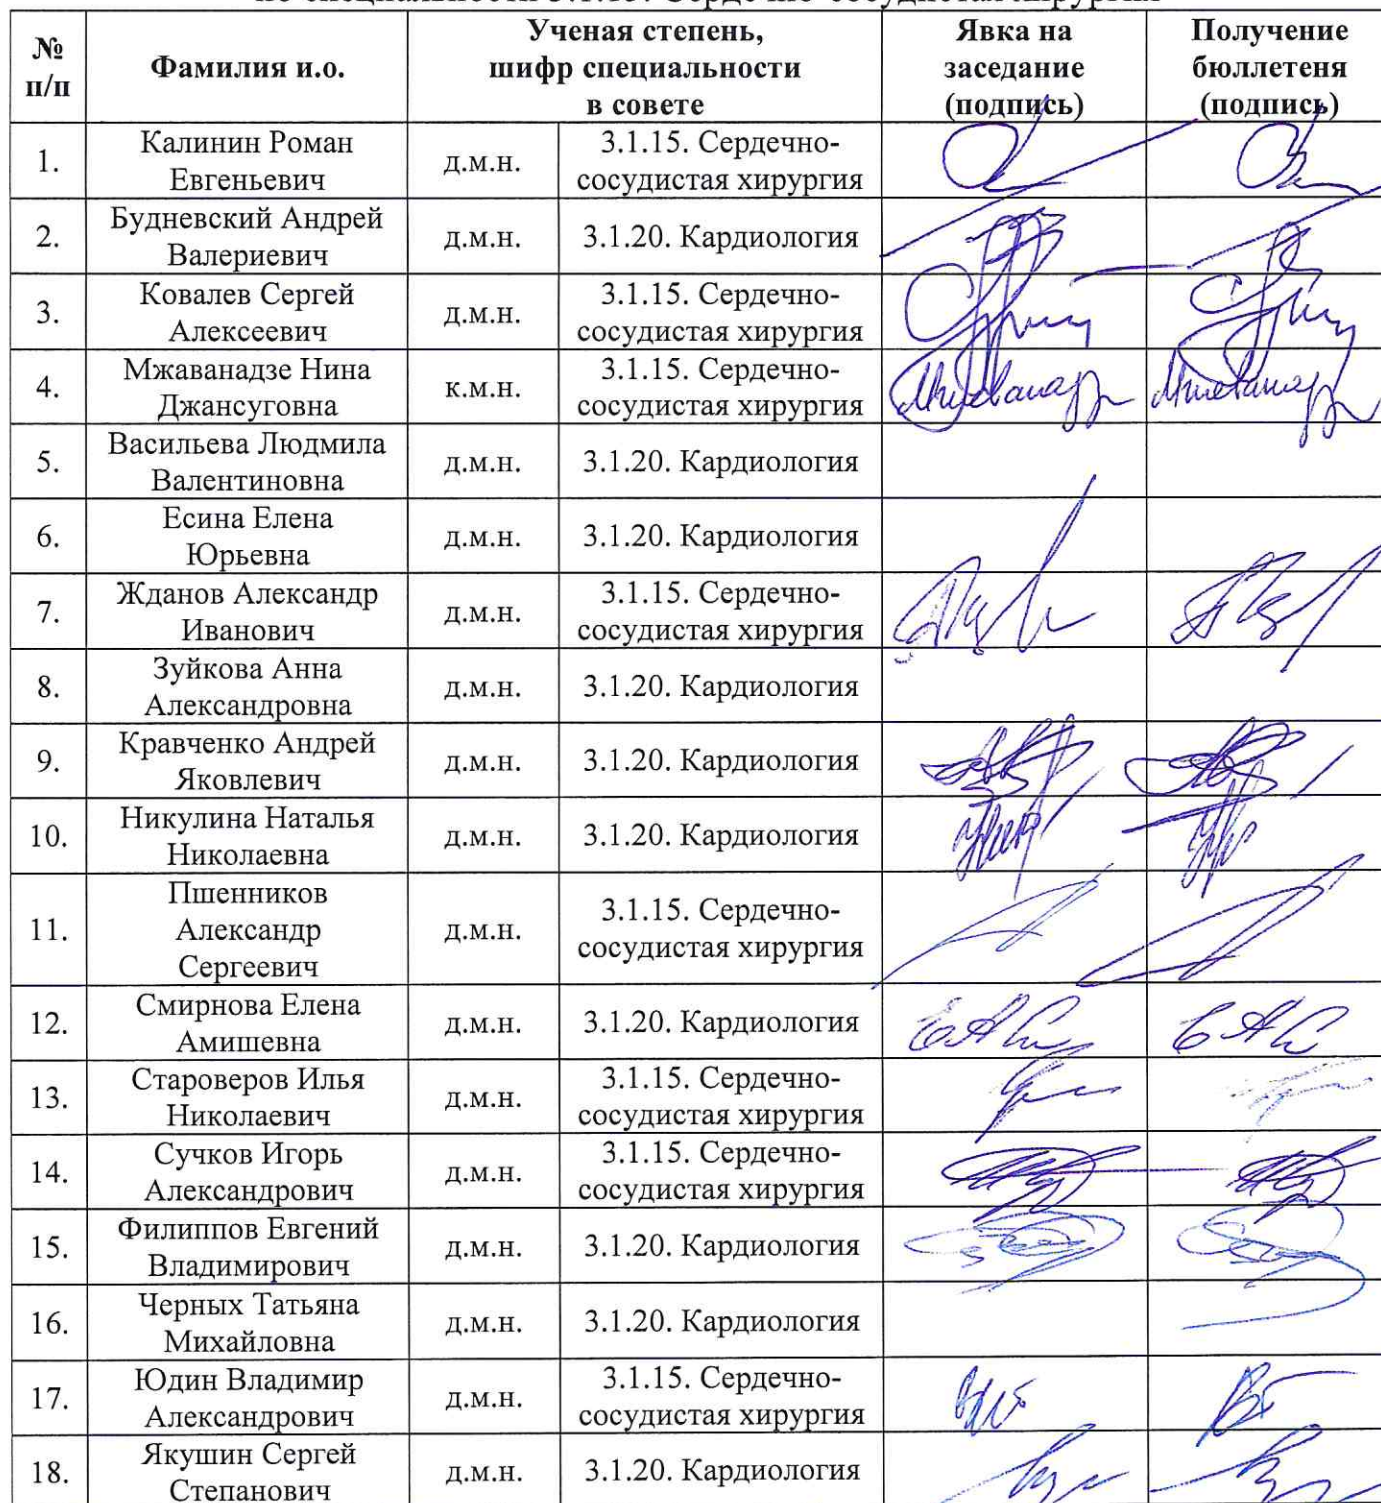 по специальности 3.1.15. Сердечно-сосудистая хирургия
№ п/п
Фамилия и.о.
Ученая степень,
шифр специальности
в совете
Явка на
заседание
(подпись)
Получение
бюллетеня
(подпись)
1.
Калинин Роман
Евгеньевич
д.м.н.
3.1.15. Сердечно-
сосудистая хирургия
2.
Будневский Андрей
Валериевич
д.м.н.
3.1.20. Кардиология
3.
Ковалев Сергей
Алексеевич
д.м.н.
3.1.15. Сердечно-
сосудистая хирургия
4.
Мжаванадзе Нина
Джансуговна
к.м.н.
3.1.15. Сердечно-
сосудистая хирургия
5.
Васильева Людмила
Валентиновна
д.м.н.
3.1.20. Кардиология
6.
Есина Елена
Юрьевна
д.м.н.
3.1.20. Кардиология
7.
Жданов Александр
Иванович
д.м.н.
3.1.15. Сердечно-
сосудистая хирургия
8.
Зуйкова Анна
Александровна
д.м.н.
3.1.20. Кардиология
9.
Кравченко Андрей
Яковлевич
д.м.н.
3.1.20. Кардиология
10.
Никулина Наталья
Николаевна
д.м.н.
3.1.20. Кардиология
11.
Пшенников
Александр
Сергеевич
д.м.н.
3.1.15. Сердечно-
сосудистая хирургия
12.
Смирнова Елена
Амишевна
д.м.н.
3.1.20. Кардиология
13.
Староверов Илья
Николаевич
д.м.н.
3.1.15. Сердечно-
сосудистая хирургия
14.
Сучков Игорь
Александрович
д.м.н.
3.1.15. Сердечно-
сосудистая хирургия
15.
Филиппов Евгений
Владимирович
д.м.н.
3.1.20. Кардиология
16.
Черных Татьяна
Михайловна
д.м.н.
3.1.20. Кардиология
17.
Юдин Владимир
Александрович
д.м.н.
3.1.15. Сердечно-
сосудистая хирургия
18.
Якушин Сергей
Степанович
д.м.н.
3.1.20. Кардиология